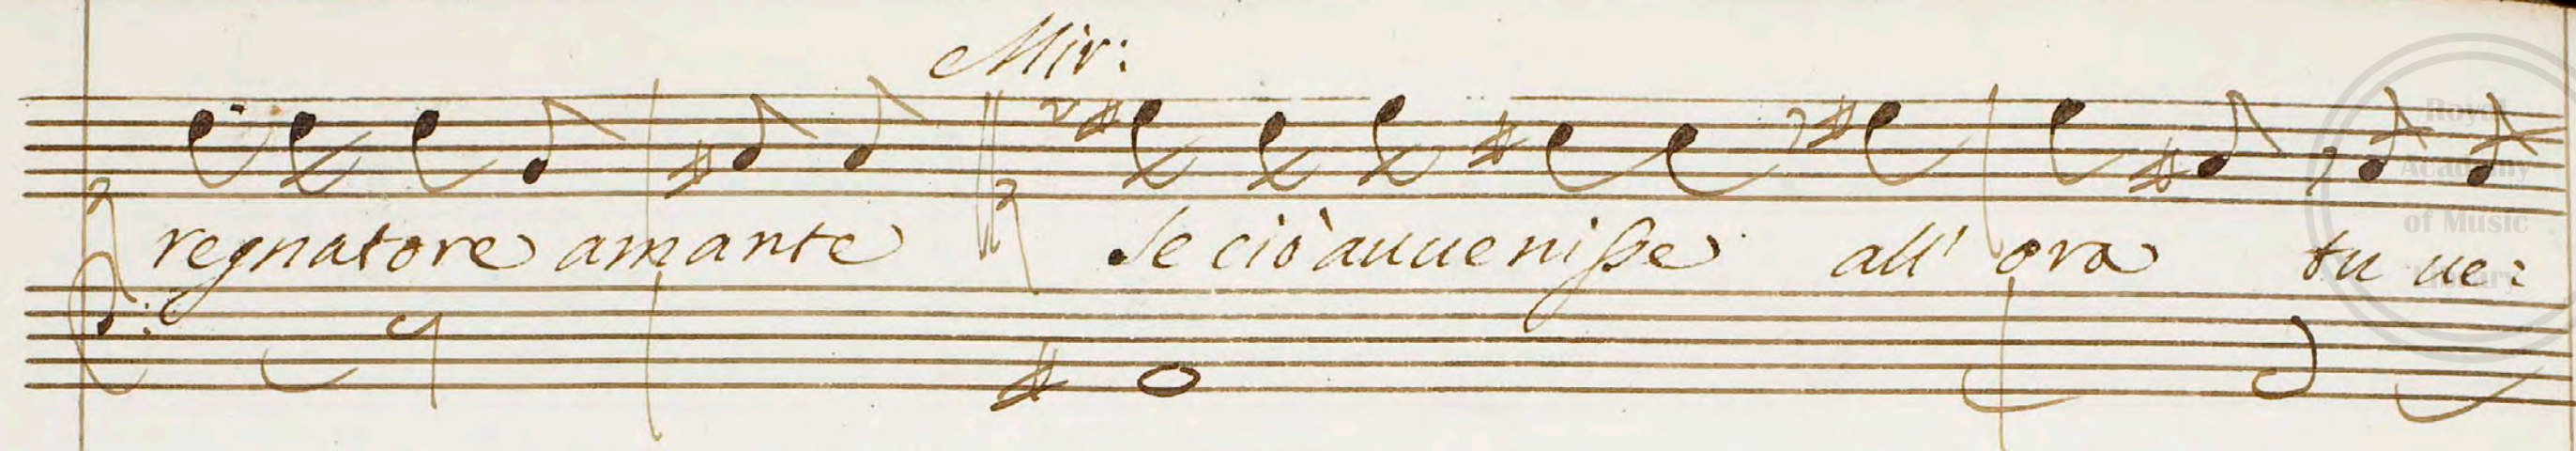 Mir:
regnatore amante Se ciò auueniſse all' ora tu ue:
Royal
Academy
of Music
Library